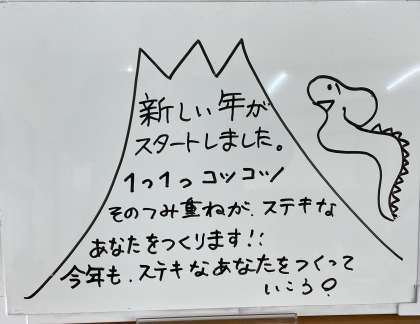 新しい年が
スタートしました。
1つ1つ コツコツ
そのつみ重ねが、ステキな
あなたをつくります!!
今年も、ステキなあなたをつくって
いこう!